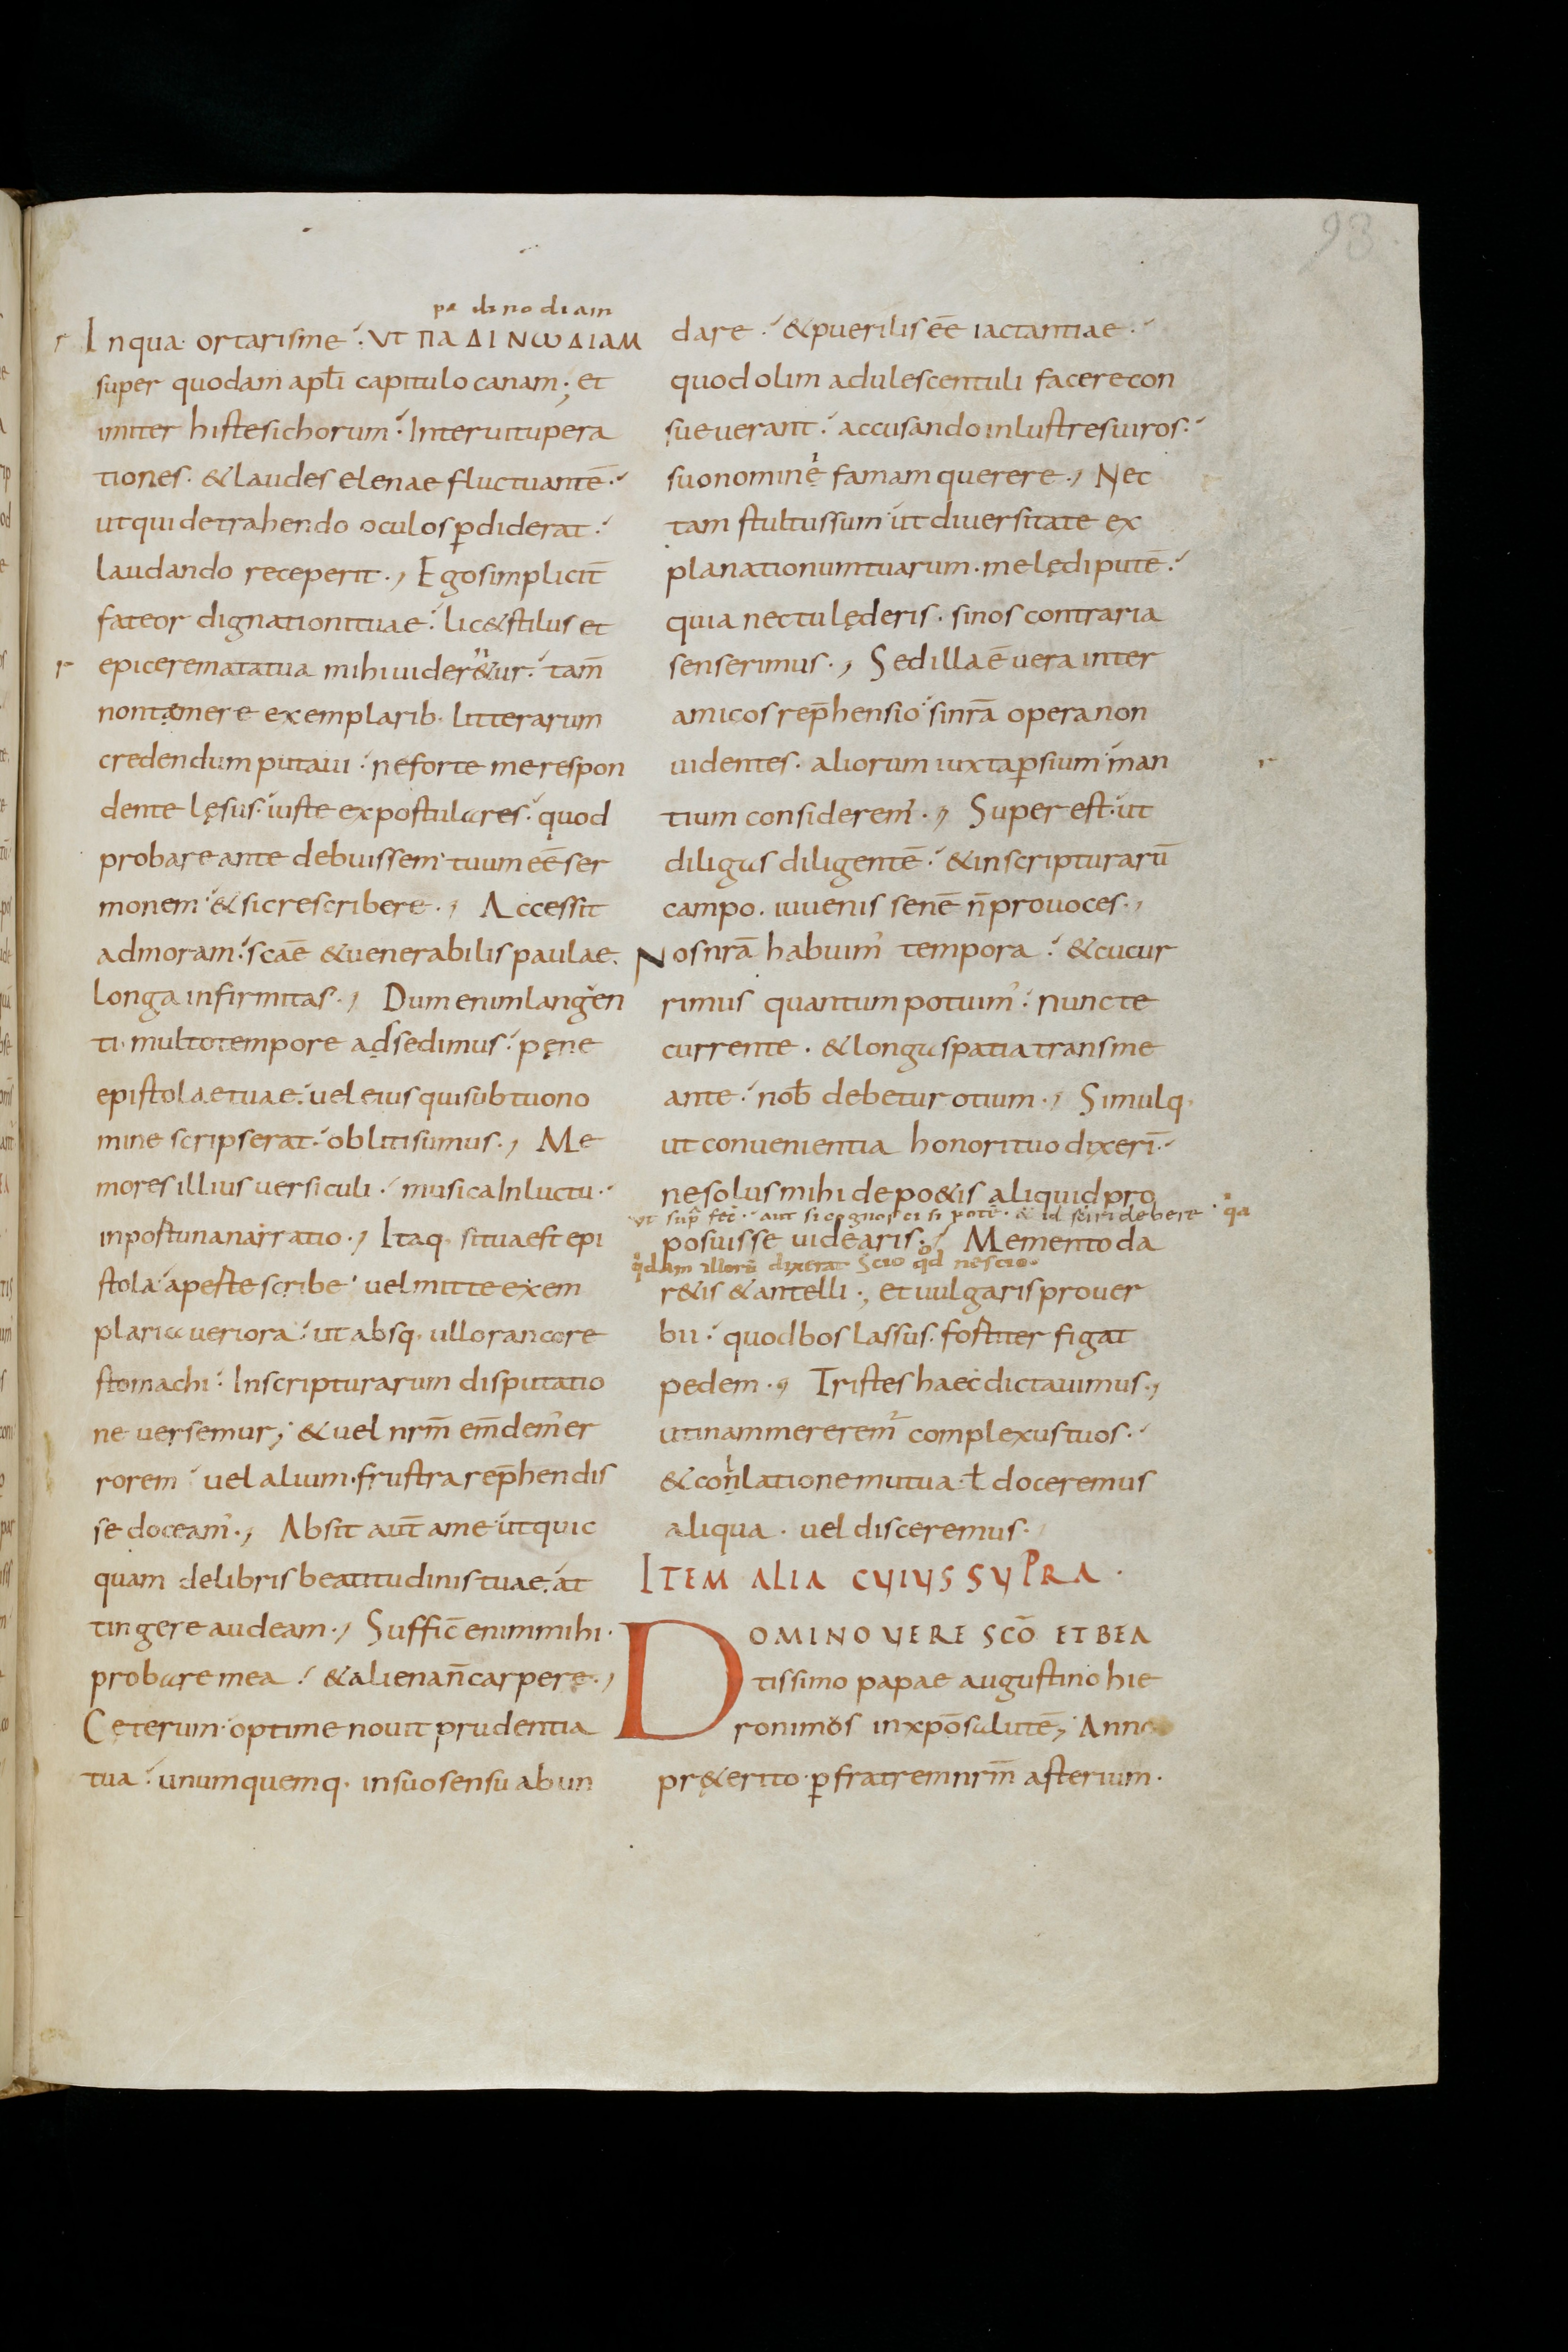 98
pa di no diam
r Inqua ortarisme ut παδινωδιαμ
super quodam apłi capitulo canam; et
imiter histesichorum· Interuitupera
tiones· &laudes elenae fluctuantē·
utquidetrahendo oculos ꝑdiderat·
laudando receperit·, Egosimplicit̄
fateor dignationituae· lic&stilus et
r epicerematatua mihiuider&ur· tam̄
nontęmere exemplarib· litterarum
credendumputaui· neforte merespon
dente lęsus· iuste expostulares· quod
probareante debuissem· tuum eē ser
monem· &sicrescriberē·, Accessit
admoram· scāe &uenerabilispaulae·
longainfirmitas·, Dumenimlangen
ti· multotempore adsedimus· pęne
epistolaetuae· uel eius quisubtuono
mine scripserat· oblitisumus·, Me
moresillius uersiculi· musicaInluctu·
inpostunanarratio·, Itaq· situaest epi
stola· apeste scribe· uelmitte exem
plaria ueriora· ut absq· ullorancore
stomachi· Inscripturarum disputatio
ne uersemur; &uel nrm̄ em̄dem er
rorem· uel alium·frustra rep̄hendis
se doceam'·, Absit aut̄ ame· utquic
quam delibrisbeatitudinistuae· at
tingereaudeam·, Sufficͣ enimmihi·
probare mea· &aliena n̄carpere·,
Ceterum· optime nouit prudentia
tua· unumquemq· insuosensu abun
dare· &puerilis eē iactantiae·
quodolim adulescentuli facerecon
sueuerant· accusandoinlustresuiros·
suonomine famam querere·, Nec
tam stultussum· utdiuersitate ex
planationumtuarum·melędiputē·
quia nectulęderis· sinos contraria
senserimus·, Sedilla ē uera inter
amicosrep̄hensio· sinr̄a opera non
uidentes· aliorum iuxta ꝑsium· man r
tium considerem'·, Superest· ut
diligas diligentē· &inscripturarū
campo· iuuenis senē n̄prouoces·,
Nosnr̄a habuim' tempora· &cucur
rimus quantumpotuim'· nuncte
currente· &longaspatiatransme
ante· nob̄ debetur otium·, Simulq·
utconuenientia honorituodixerī·
nesolusmihi depo&is aliquidpro
ut sup̄ fec̄· aut si cognosci si pote· & id sciri debere· qa
posuisse uidearis·, Mementoda
qdam illorū dixerat Scio qd nescio·
r&is &antelli·, etuulgarisprouer
bii· quodboslassus· fostiter figat
pedem·, Tristeshaecdictauimus·,
utinammererem' complexustuos·
&conlationemutua·ł doceremus
aliqua· uel disceremus·
ITEM ALIA CUIUS SUPRA·
DOMINO UERE SCŌ ET BEA
tissimo papae augustino hie
ronimos inxp̄osalutē, Anno
pr&erito·ꝑfratremnrm̄ asterium·